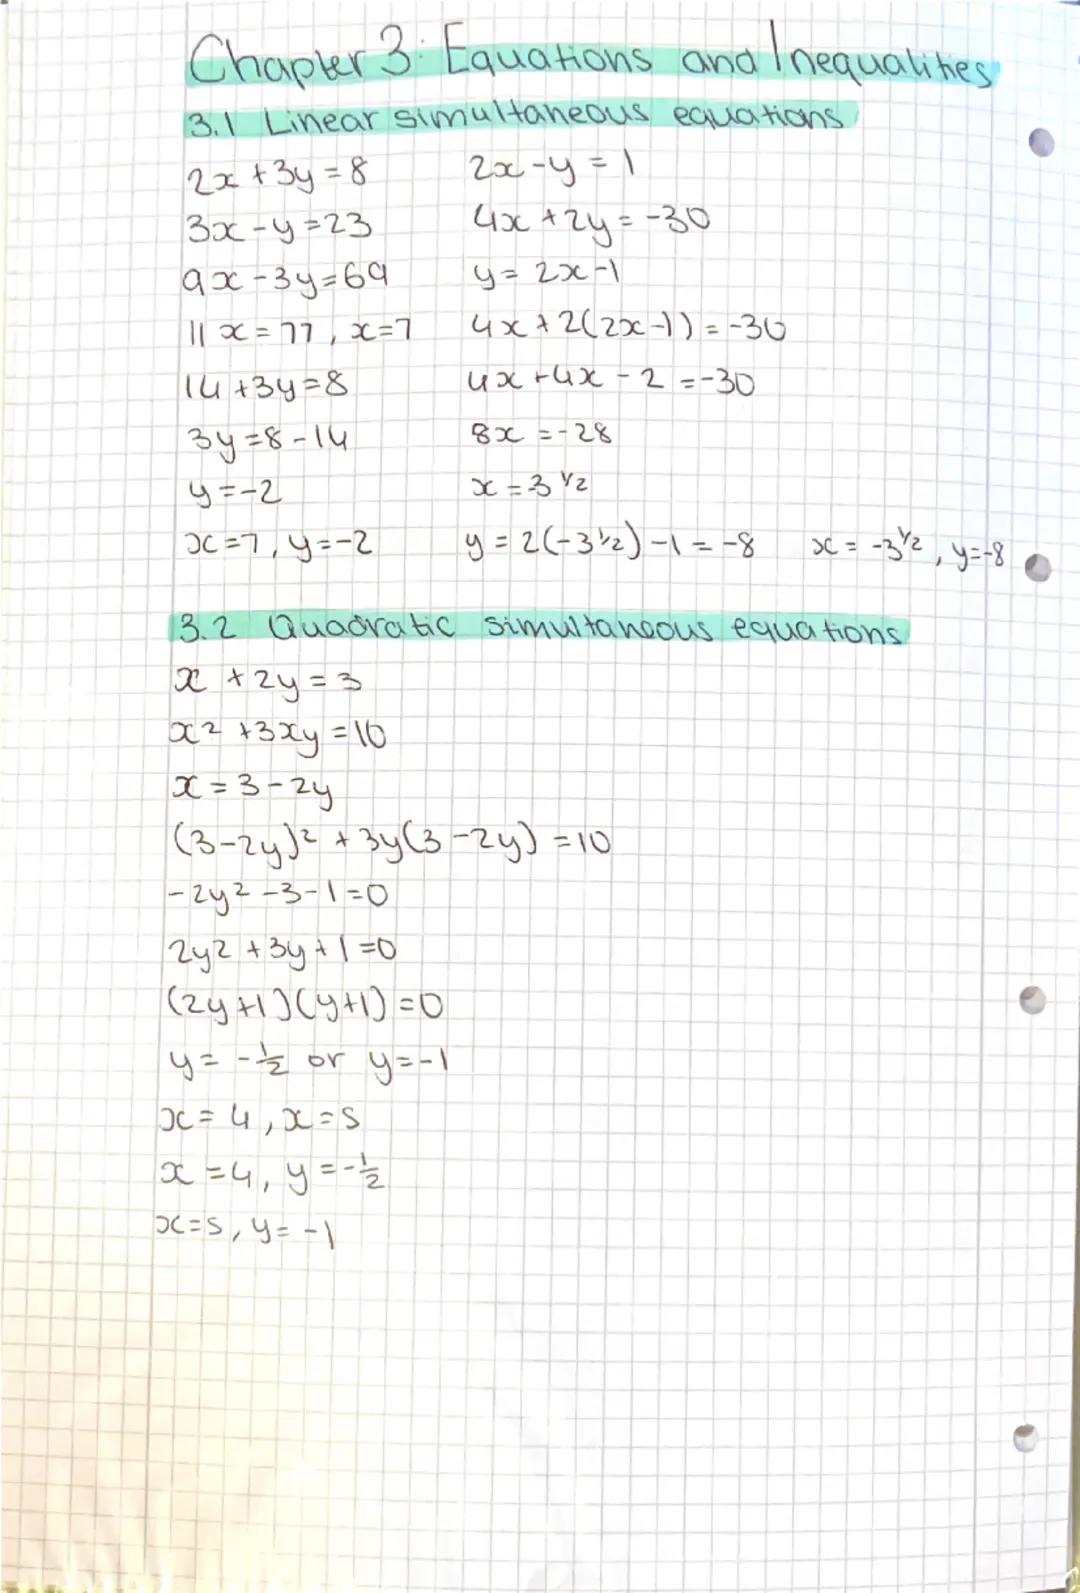 Chapter 3: Equations and Inequalities
3.1 Linear simultaneous equations
2x + 3y = 8
3x - y = 23
9x - 3y = 69
11x = 77, x = 7
14 + 3y = 8
3y = 8 - 14
y = -2
x = 7, y = -2
2x - y = 1
4x + 2y = -30
y = 2x - 1
4x + 2(2x - 1) = -30
4x + 4x - 2 = -30
8x = -28
x = -3 1/2
y = 2(-3 1/2) - 1 = -8 x = -3 1/2, y = -8
3.2 Quadratic simultaneous equations
x + 2y = 3
x² + 3xy = 10
x = 3 - 2y
(3 - 2y)² + 3y(3 - 2y) = 10
-2y² - 3 - 1 = 0
2y² + 3y + 1 = 0
(2y + 1)(y + 1) = 0
y = -½ or y = -1
x = 4, x = 5
x = 4, y = -½
x = 5, y = -1